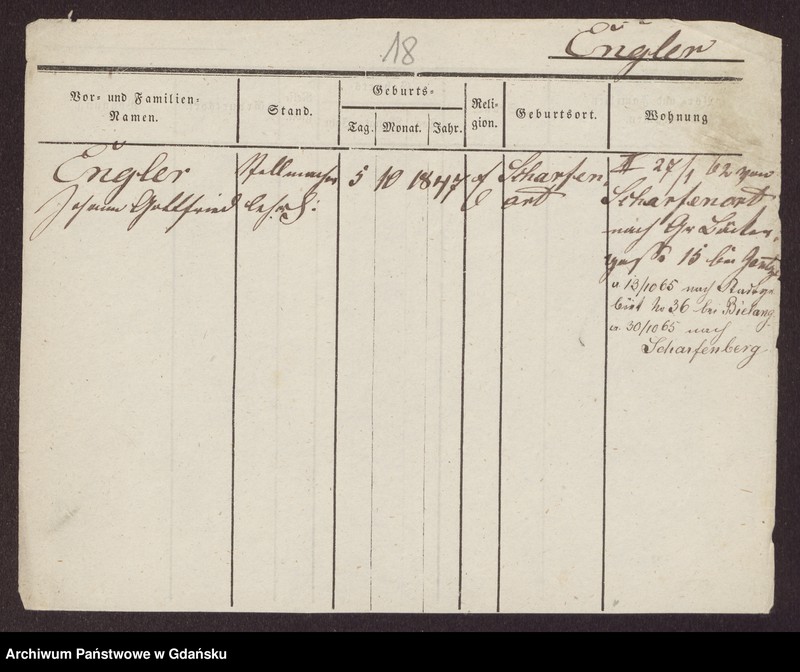 18
Engler
Vor- und Familien-
Namen.
Stand.
Geburts-
Tag.
Monat.
Jahr.
Reli-
gion.
Geburtsort.
Wohnung
Engler
Johann Gottfried
Stellmacher
lehrl:
5
10
1847
Scharfen
ort
27/1 62 von
Scharfenort
nach Gr Bäcker
gasse 15 bei
a 13/10 65 nach
No 36 bei Bielang
a 30/10 65 nach
Scharfenberg
Archiwum Państwowe w Gdańsku